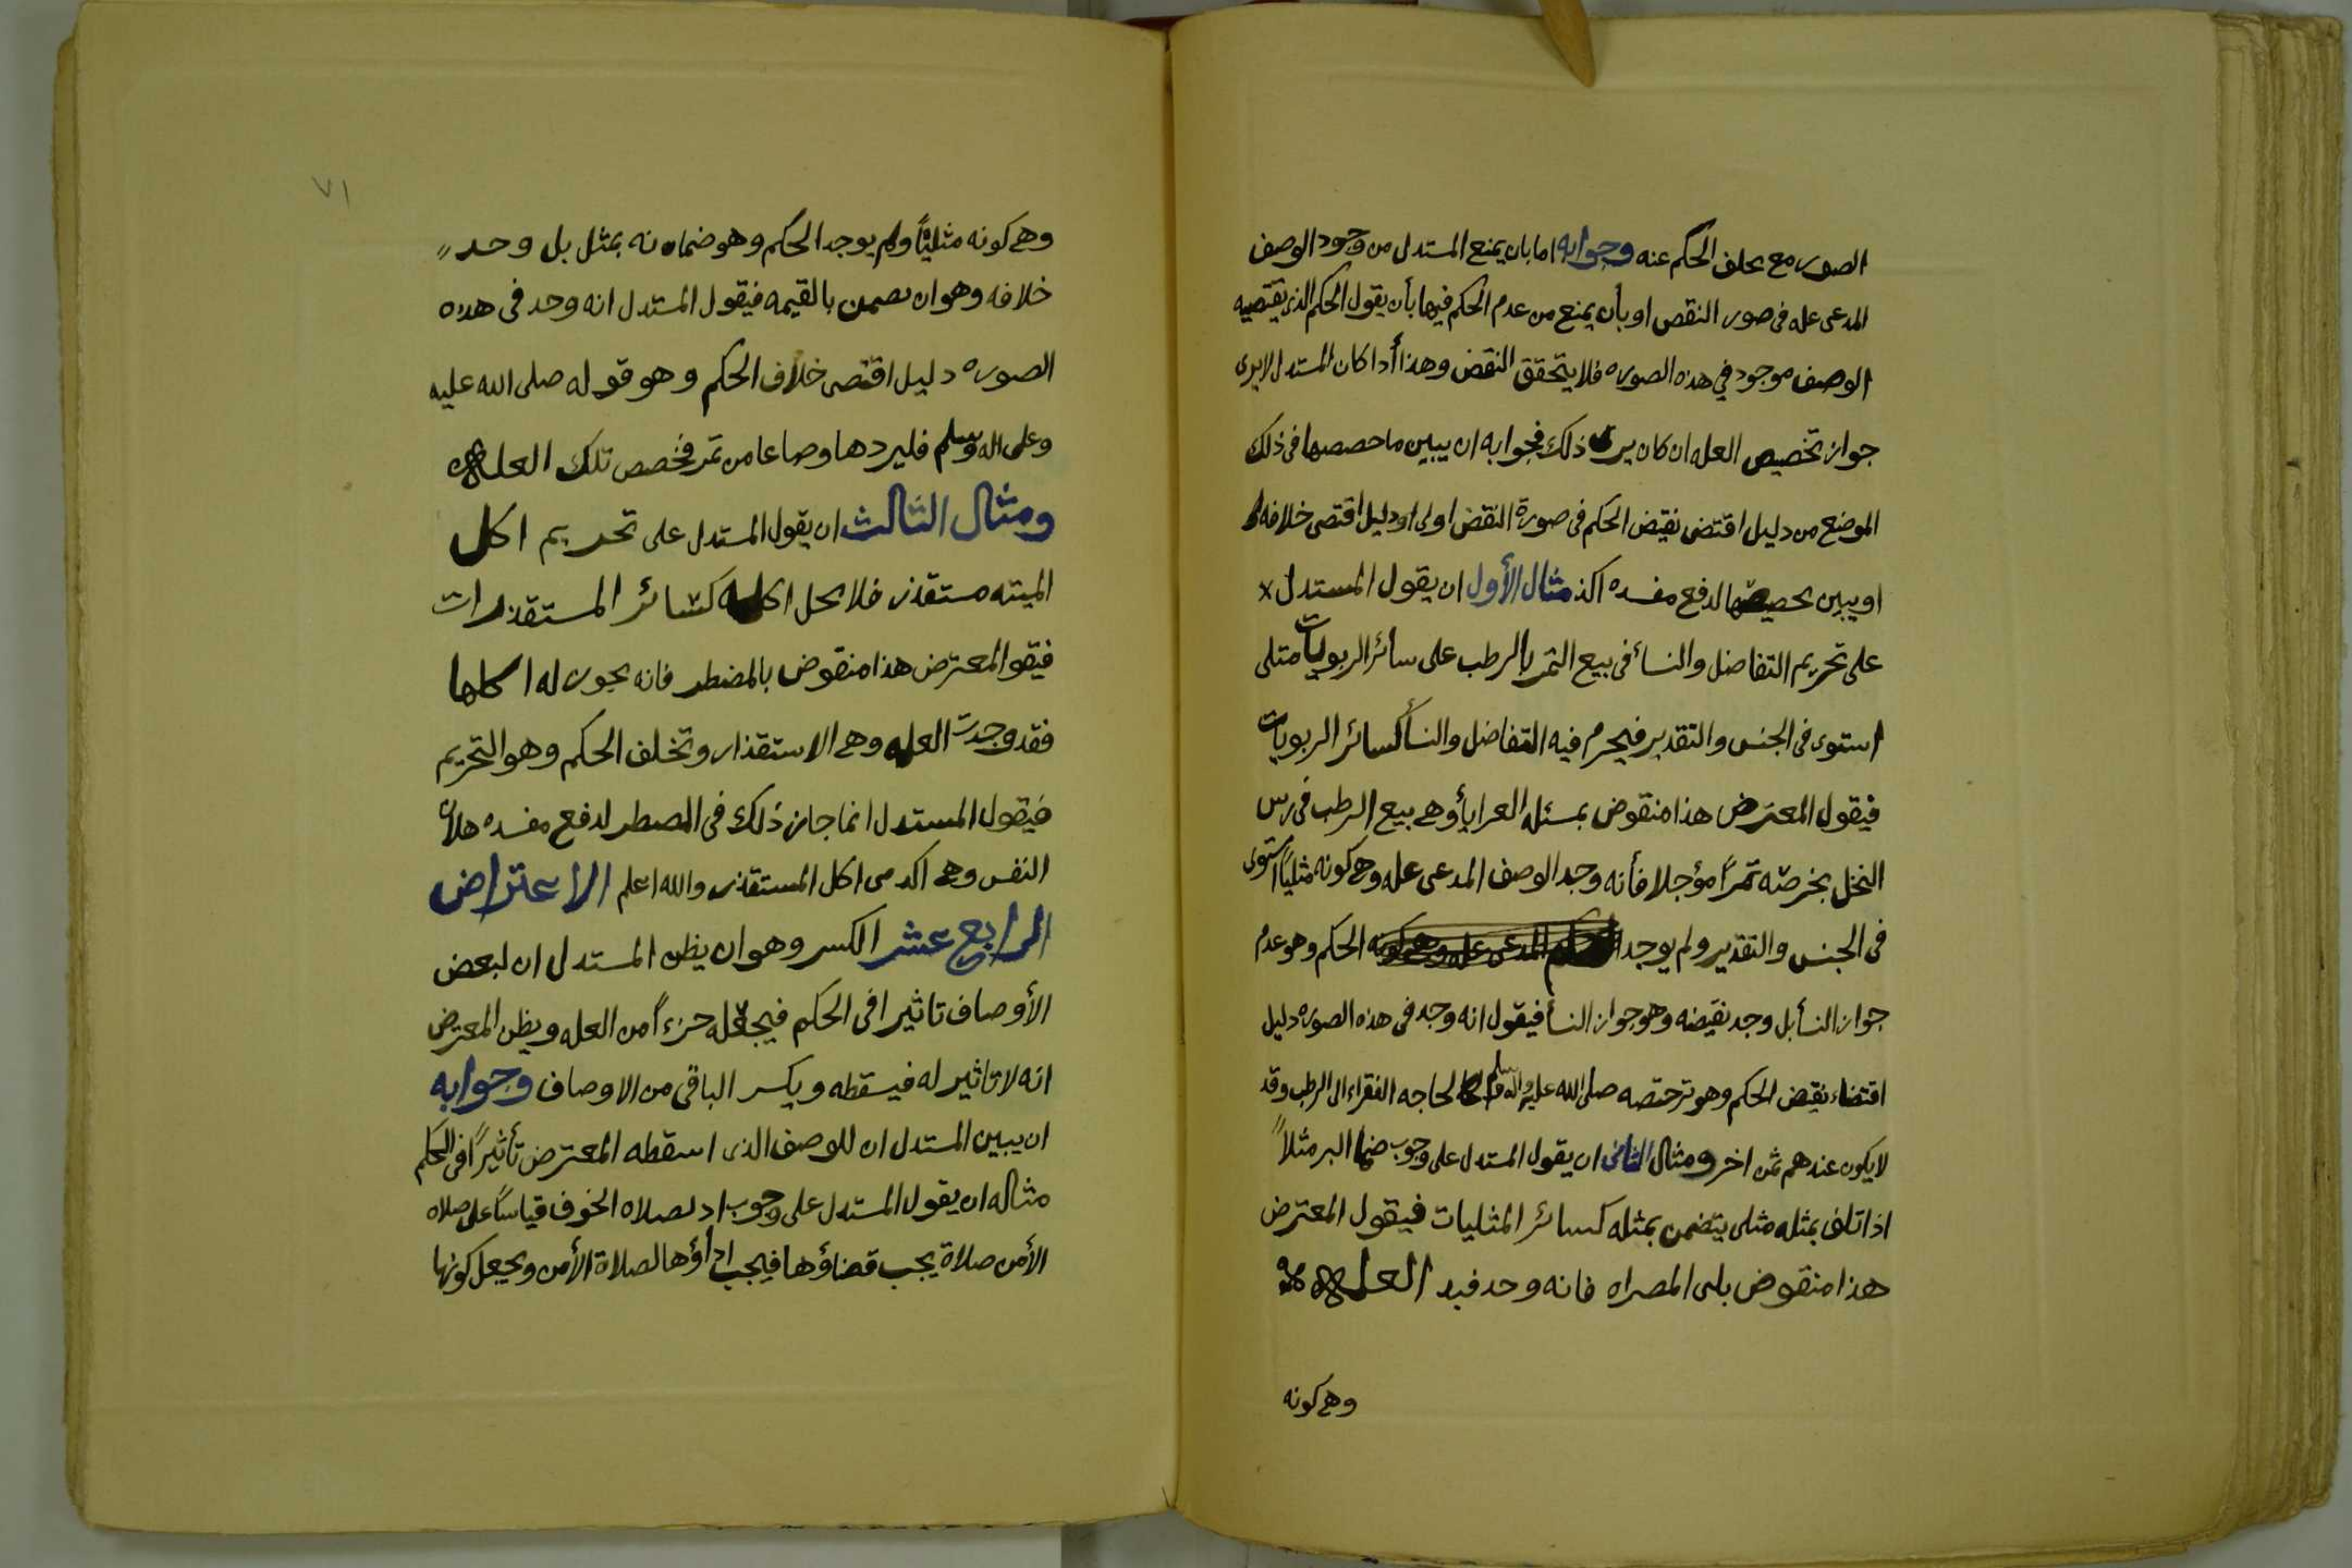 الصور مع تخلف الحكم عنه وجوابه اما بان يمنع المستدل من وجود الوصف
المدعى عله فى صور النقص او بأن يمنع من عدم الحكم فيها بأن يقول الحكم الذى يقتضيه
الوصف موجود في هذه الصوره فلا يتحقق النقض وهذا أذا كان المستدل لايرى
جواز تخصيص العله ان كان يرى ذلك فجوابه ان يبين ما خصصها فى ذلك
الموضع من دليل اقتضى نقيض الحكم فى صورة النقض اولى او دليل اقتضى خلافه
او يبين تخصيصها لدفع مفسده اكد مثال الأول ان يقول المستدل
على تحريم التفاضل والنسأ فى بيع التمر بالرطب على سائر الربويات مثلى
استوى فى الجنس والتقدير فيحرم فيه التفاضل والنسأ كسائر الربويات
فيقول المعترض هذا منقوض بمسئله العرايأ وهى بيع الرطب فى رس
النخل بخرصه تمرًا مؤجلا فأنه وجد الوصف المدعى عله وهى كونه مثليًا استوى
فى الجنس والتقدير ولم يوجد الحكم وهو عدم
جواز النسأ بل وجد نقيضه وهو جواز النسأ فيقول انه وجد فى هذه الصوره دليل
اقتضاء نقيض الحكم وهو ترخيصه صلى الله عليه واله وسلم لحاجه الفقراء الى الرطب وقد
لايكون عندهم ثمن اخر ومثال الثانى ان يقول المستدل على وجوب ضمان البر مثلاً
اذا تلف بمثله مثلى يتضمن بمثله كسائر المثليات فيقول المعترض
هذا منقوض بلبن المصراه فانه وجد فيه العله
وهى كونه
٧١
وهى كونه مثليًّا ولم يوجد الحكم وهو ضمانه بمثل بل وجد
خلافه وهو ان يضمن بالقيمه فيقول المستدل انه وجد فى هذه
الصوره دليل اقتضى خلاف الحكم وهو قوله صلى الله عليه
وعلى اله وسلم فليردها وصاعا من تمر فخصص تلك العله
ومثال الثالث ان يقول المستدل على تحريم اكل
الميته مستقذر فلا يحل اكله كسائر المستقذرات
فيقو المعترض هذا منقوض بالمضطر فانه يجوز له اكلها
فقد وجدت العله وهى الاستقذار وتخلف الحكم وهو التحريم
فيقول المستدل انما جاز ذلك فى المضطر لدفع مفسده هلاك
النفس وهى اكد من اكل المستقذر والله اعلم الاعتراض
الرابع عشر الكسر وهو ان يظن المستدل ان لبعض
الأوصاف تاثيرا فى الحكم فيجعله جزءاً من العله ويظن المعترض
انه لا تاثير له فيسقطه ويكسر الباقى من الاوصاف وجوابه
ان يبين المستدل ان للوصف الذى اسقطه المعترض تأثيرًا فى الحكم
مثاله ان يقول المستدل على وجوب اد لصلاه الخوف قياسًا على صلاه
الأمن صلاة يجب قضاؤها فيجب اداؤها لصلاة الأمن ويجعل كونها